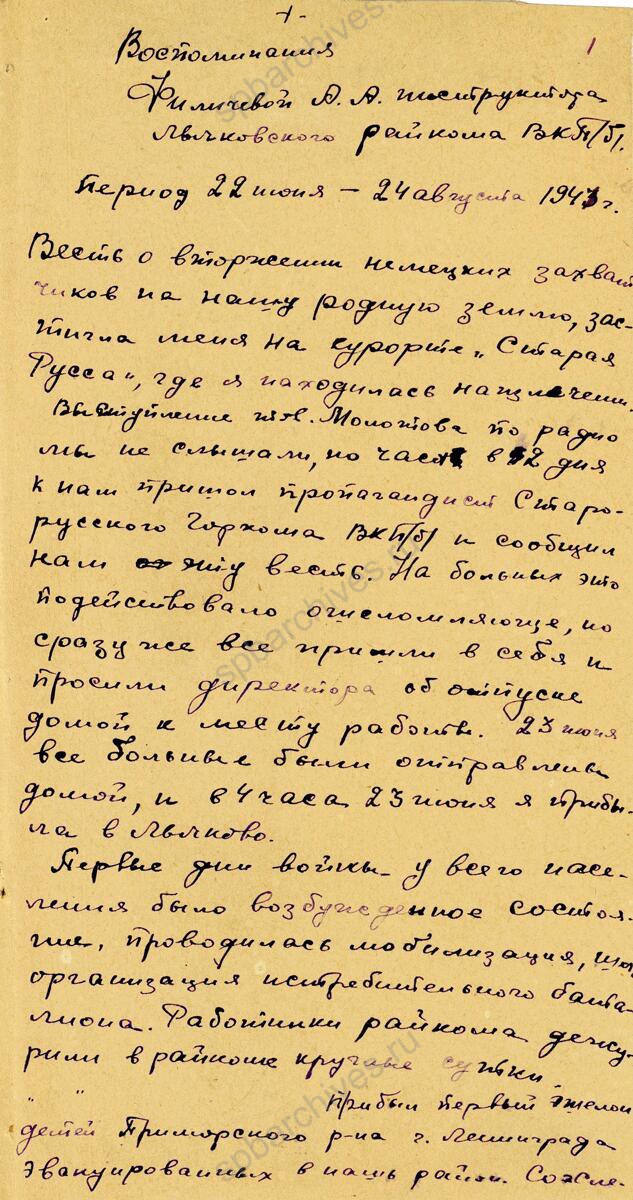 1
Воспоминания
Филичевой А. А. инструктора
Лычковского райкома ВКП/б/.
период 22 июня – 24 августа 1941 г.
Весть о вторжении немецких захват
чиков на нашу родную землю, зас-
тигла меня на курорте „Старая
Русса", где я находилась на излечении.
Выступление тов. Молотова по радио
мы не слышали, но часа в 2 дня
к нам пришол пропагандист Старо-
русского Горкома ВКП/б/ и сообщил
нам эту весть. На больных это
подействовало ошеломляюще, но
сразу же все пришли в себя и
просили директора об отпуске
домой к месту работы. 23 июня
все больные были отправлены
домой, и в 4 часа 23 июня я прибы-
ла в Лычково.
Первые дни войны у всего насе-
ления было возбужденное состоя-
ние, проводилась мобилизация, шла
организация истребительного бата-
лиона. Работники райкома дежу-
рили в райкоме круглые сутки.
" " прибыл первый эшелон
детей Приморского р-на г. Ленинграда
эвакуированных в нашь район. Сожле-
spbarchives.ru